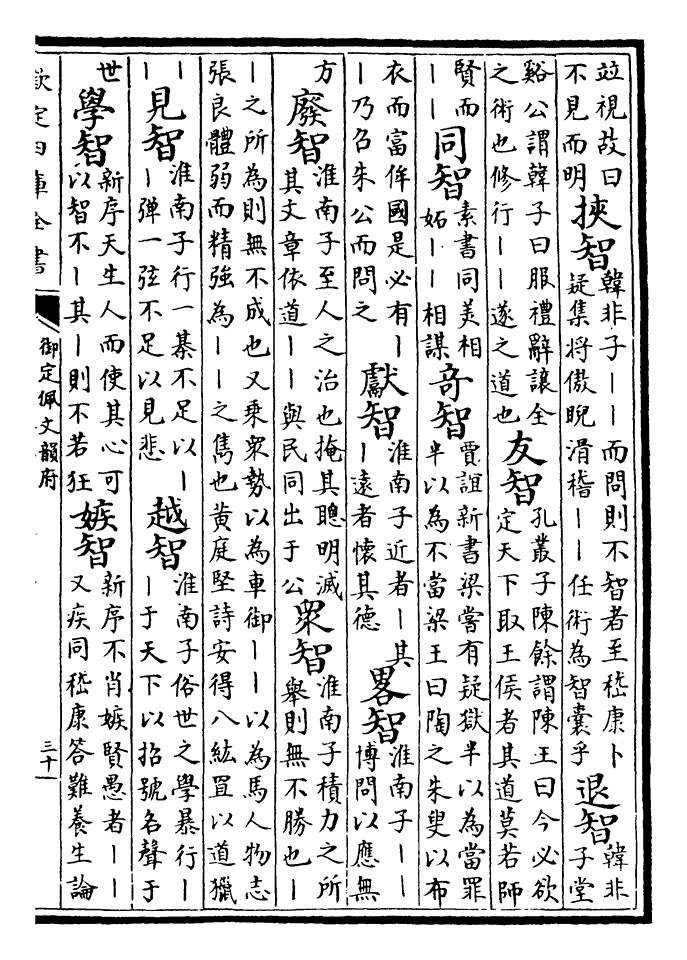 竝視故曰不見而明挾智韓非子——而問則不智者至嵇康卜疑集將傲睨滑稽——任術為智囊乎退智韓非子堂
谿公謂韓子曰服禮辭讓全之術也修行——遂之道也友智孔叢子陳餘謂陳王曰今必欲定天下取王侯者其道莫若師
賢而——同智素書同美相妬——相謀奇智賈誼新書梁嘗有疑獄半以為當罪半以為不當梁王曰陶之朱叟以布
衣而富侔國是必有——乃召朱公而問之獻智淮南子近者—其—遠者懷其德畧智淮南子——博問以應無
方廢智淮南子至人之治也掩其聰明滅其文章依道——與民同出于公衆智淮南子積力之所舉則無不勝也—
—之所為則無不成也又乘衆勢以為車御——以為馬人物志張良體弱而精強為——之雋也黄庭堅詩安得八紘罝以道獵
——見智淮南子行一棊不足以——弹一弦不足以見悲越智淮南子俗世之學暴行——于天下以招號名聲于
世學智新序天生人而使其心可以智不—其—則不若狂嫉智新序不肖嫉賢愚者——又疾同嵇康答難養生論
欽定四庫全書
御定佩文韻府
三十一